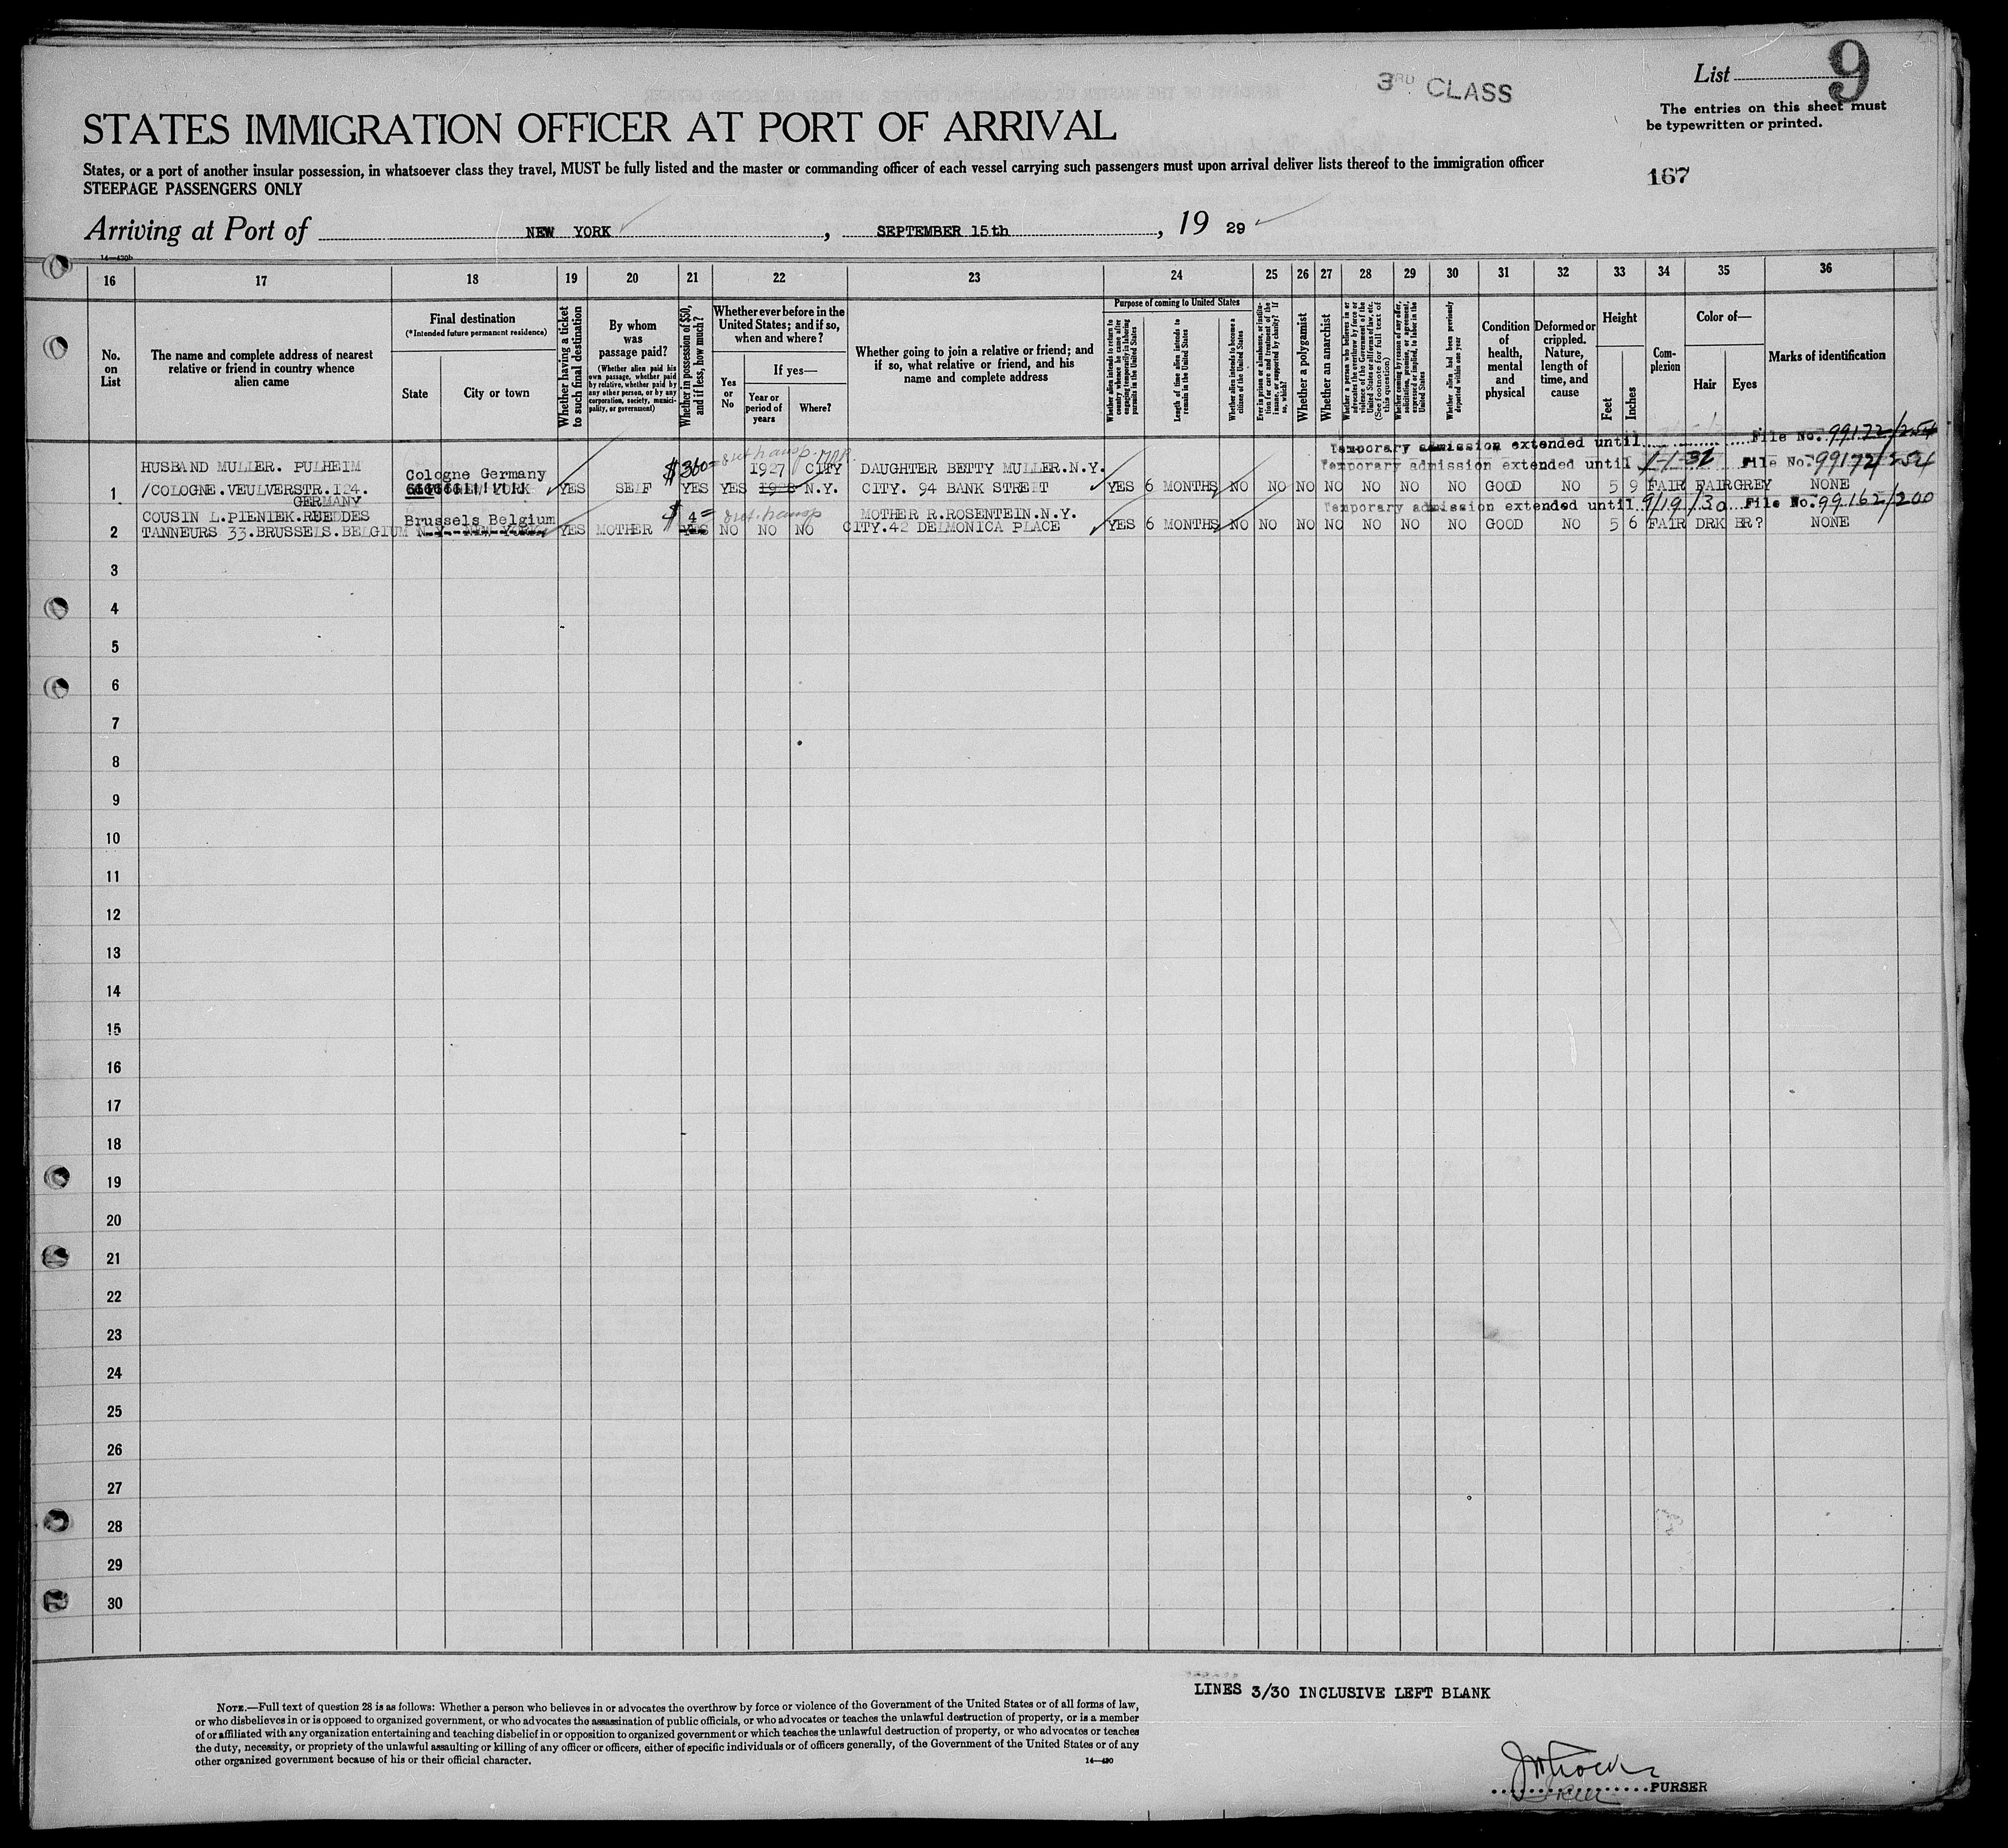 3RD CLASS
List 9
The entries on this sheet must
be typewritten or printed.
STATES IMMIGRATION OFFICER AT PORT OF ARRIVAL
States, or a port of another insular possession, in whatsoever class they travel, MUST be fully listed and the master or commanding officer of each vessel carrying such passengers must upon arrival deliver lists thereof to the immigration officer
STEERAGE PASSENGERS ONLY
167
Arriving at Port of NEW YORK, SEPTEMBER 15th, 19 29
14—430b
16 17 18 19 20 21 22 23 24 25 26 27 28 29 30 31 32 33 34 35 36
No. on List
The name and complete address of nearest relative or friend in country whence alien came
Final destination
(*Intended future permanent residence)
State
City or town
Whether having a ticket to such final destination
By whom was passage paid?
(Whether alien paid his own passage, whether paid by relative, whether paid by any other person, or by any corporation, society, municipality, or government)
Whether in possession of $50, and if less, how much?
Whether ever before in the United States; and if so, when and where?
Yes or No
If yes—
Year or period of years
Where?
Whether going to join a relative or friend; and if so, what relative or friend, and his name and complete address
Purpose of coming to United States
Whether alien intends to return to country whence he came after engaging temporarily in laboring pursuits in the United States
Length of time alien intends to remain in the United States
Whether alien intends to become a citizen of the United States
Ever in prison or almshouse, or institution for care and treatment of the insane, or supported by charity? If so, which?
Whether a polygamist
Whether an anarchist
Whether a person who believes in or advocates the overthrow by force or violence of the Government of the United States or all forms of law, etc. (See footnote for full text of this question)
Whether coming by reason of any offer, solicitation, promise, or agreement, expressed or implied, to labor in the United States
Whether alien had been previously deported within one year
Condition of health, mental and physical
Deformed or crippled. Nature, length of time, and cause
Height
Feet
Inches
Complexion
Color of—
Hair
Eyes
Marks of identification
Temporary admission extended until File No. 99172/254
Temporary admission extended until 1-1-32 File No. 99172/254
1 HUSBAND MULLER. PULHEIM /COLOGNE.VEULVERSTR.124. GERMANY Cologne Germany YES SELF $360= YES YES 1927 CITY N.Y. DAUGHTER BETTY MULLER.N.Y. CITY. 94 BANK STREET YES 6 MONTHS NO NO NO NO NO NO NO GOOD NO 5 9 FAIR FAIR GREY NONE
Temporary admission extended until 9/19/30 File No. 99162/200
2 COUSIN L.PIENIEK.RUEDDES TANNEURS 33.BRUSSELS.BELGIUM Brussels Belgium N.Y. NEW YORK YES MOTHER $4= YES NO NO NO MOTHER R.ROSENTEIN.N.Y. CITY.42 DELMONICA PLACE YES 6 MONTHS NO NO NO NO NO NO NO GOOD NO 5 6 FAIR DRK BR? NONE
3
4
5
6
7
8
9
10
11
12
13
14
15
16
17
18
19
20
21
22
23
24
25
26
27
28
29
30
LINES 3/30 INCLUSIVE LEFT BLANK
NOTE.—Full text of question 28 is as follows: Whether a person who believes in or advocates the overthrow by force or violence of the Government of the United States or of all forms of law,
or who disbelieves in or is opposed to organized government, or who advocates the assassination of public officials, or who advocates or teaches the unlawful destruction of property, or is a member
of or affiliated with any organization entertaining and teaching disbelief in or opposition to organized government or which teaches the unlawful destruction of property, or who advocates or teaches
the duty, necessity, or propriety of the unlawful assaulting or killing of any officer or officers, either of specific individuals or of officers generally, of the Government of the United States or of any
other organized government because of his or their official character.
14—430
PURSER